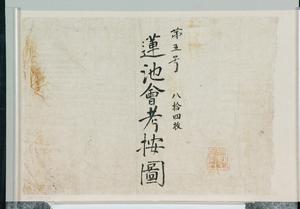 第五号
八拾四枚
蓮池會考按圖